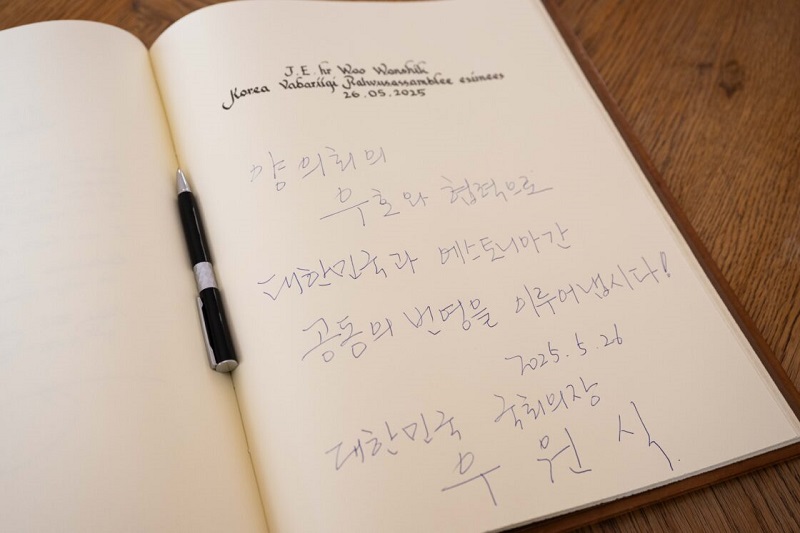 J.E. hr Woo Wonshik
Korea Vabariigi Rahvusassamblee esimees
26.05.2025
양 의회의
우호와 협력으로
대한민국과 에스토니아간
공동의 번영을 이루어냅시다!
2025. 5. 26
대한민국 국회의장
우 원 식.